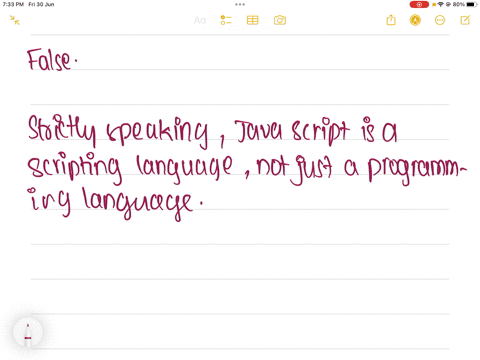 7:33 PM Fri 30 Jun
80%
Aa
False.
Strictly speaking, Java script is a
scripting language, not just a programm-
ing language.